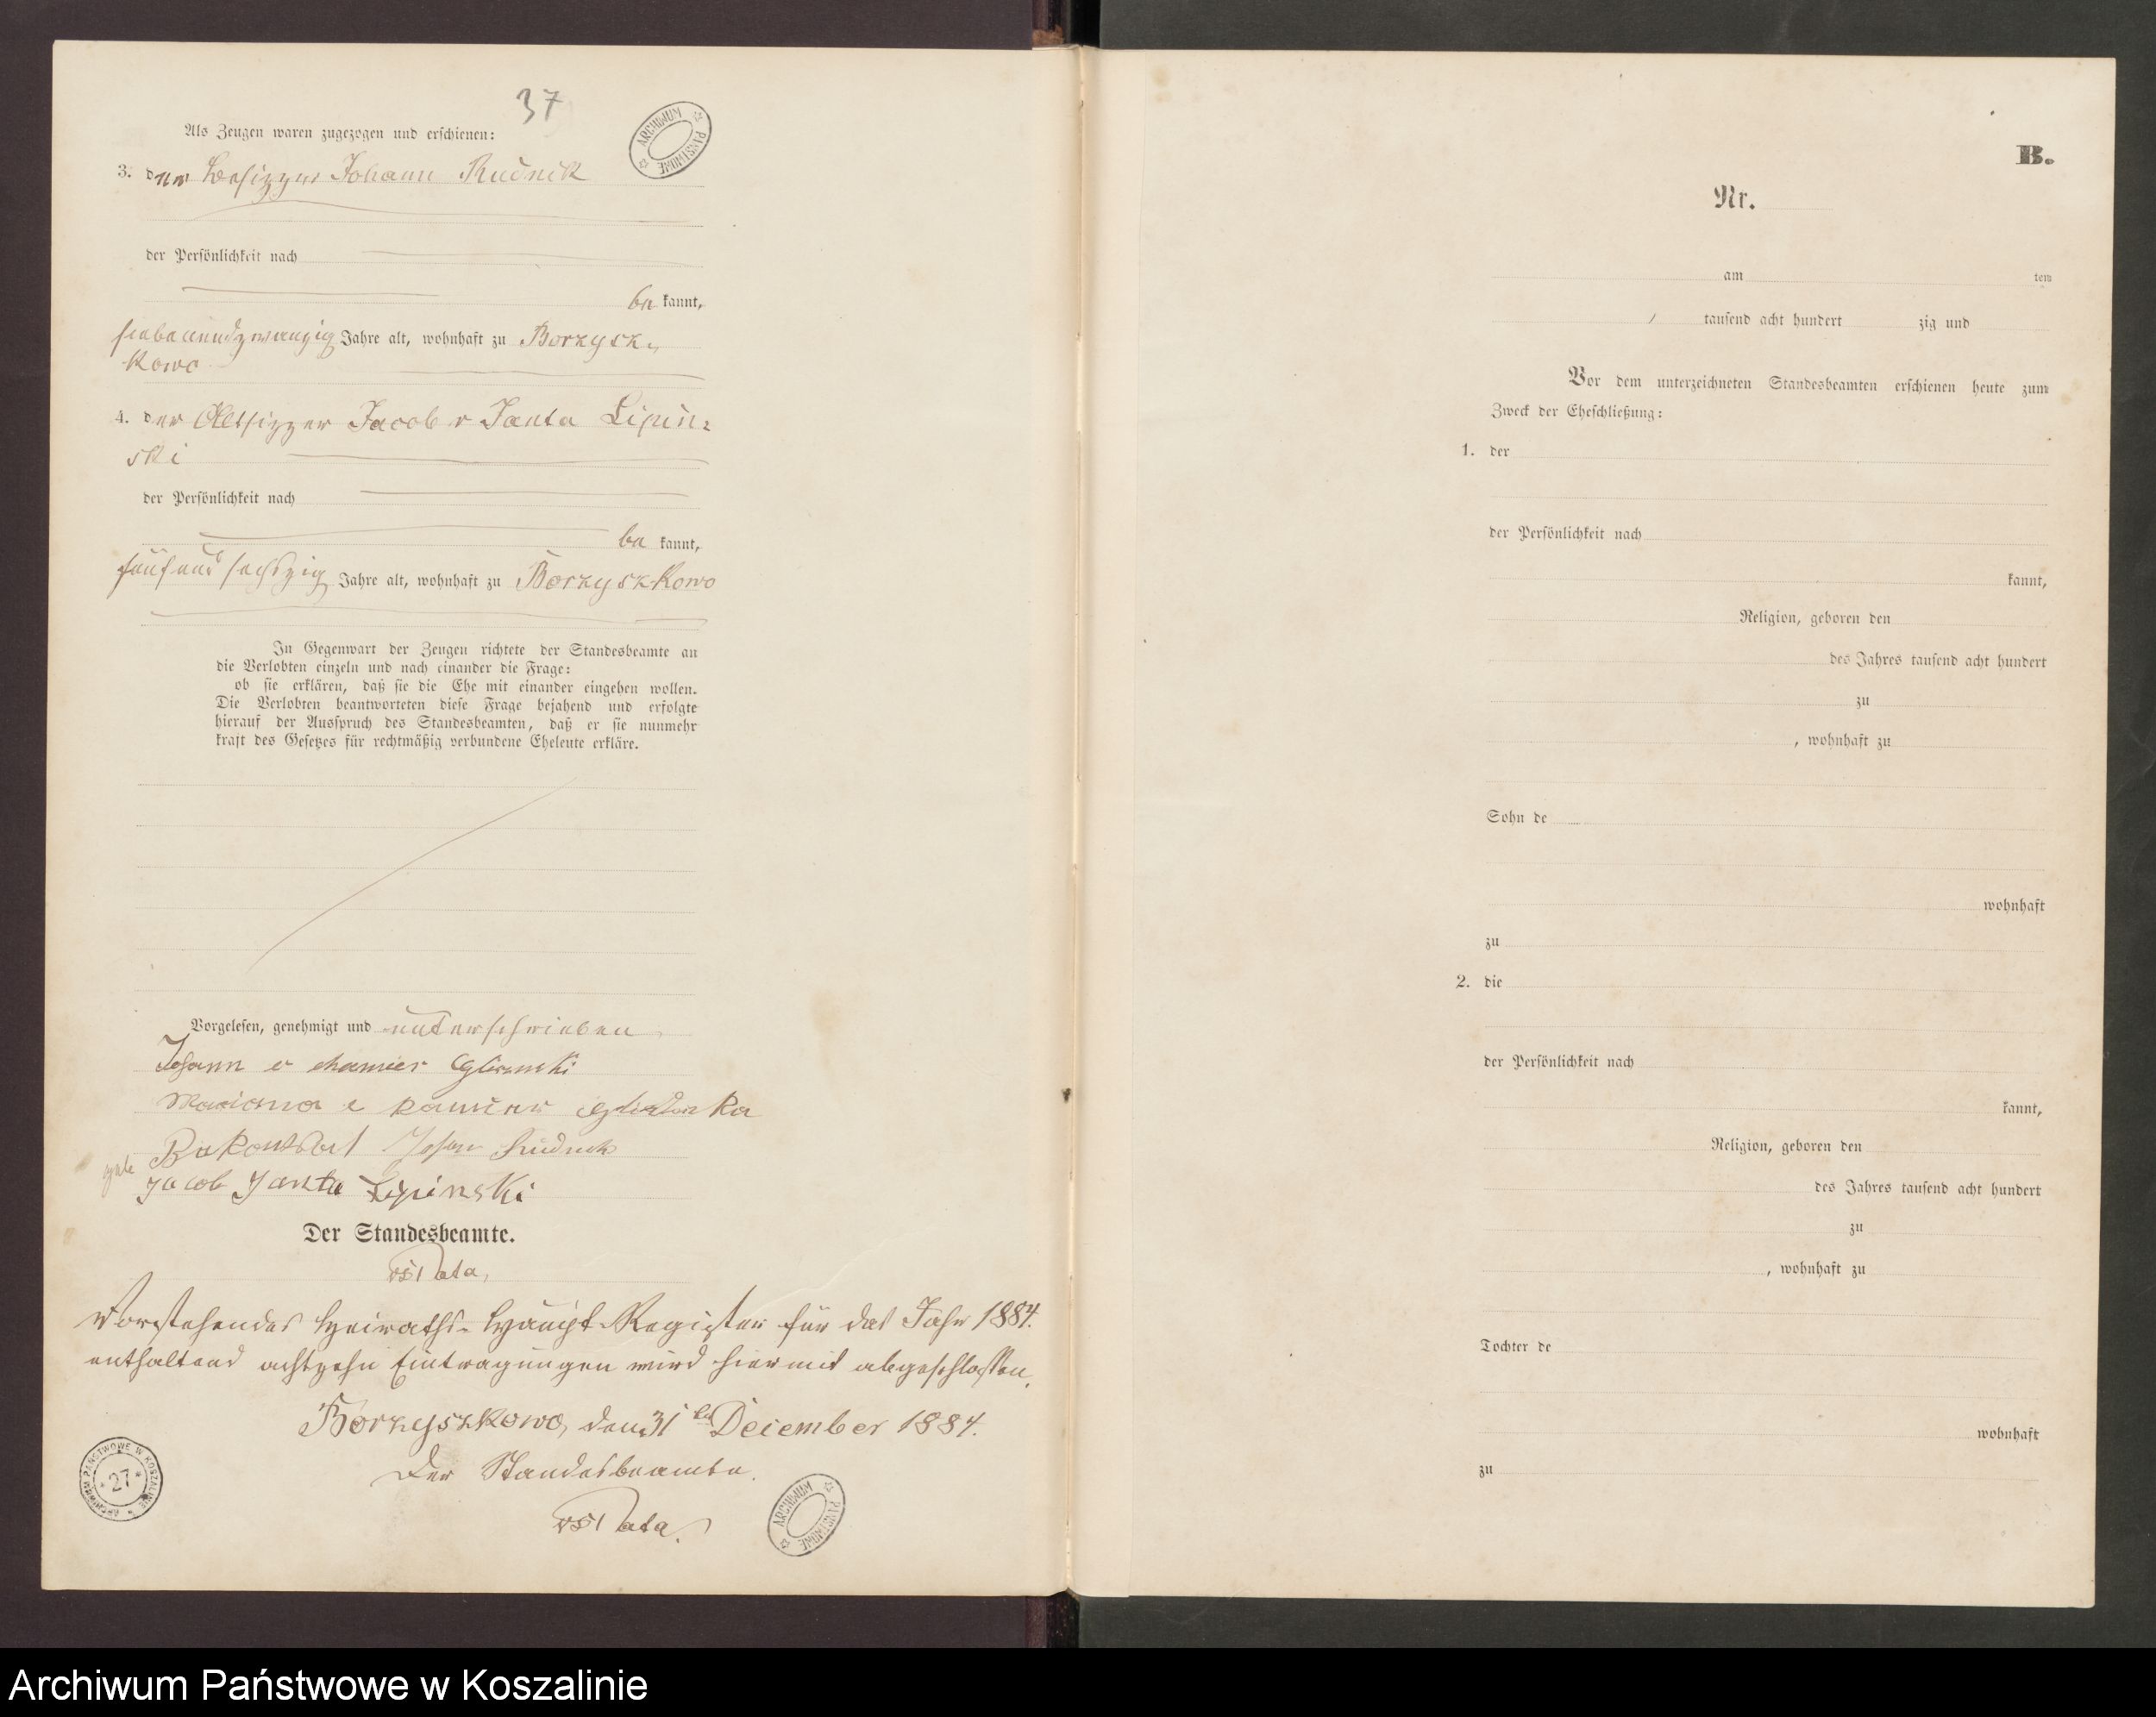 37
Als Zeugen waren zugezogen und erschienen:
ARCHIWUM PAŃSTWOWE
3. der Besitzer Johann Rudnik
der Persönlichkeit nach
be kannt,
siebenundzwanzig Jahre alt, wohnhaft zu Borzysz-
kowo
4. der Altsitzer Jacob v Janta Lipin-
ski
der Persönlichkeit nach
be kannt,
fünfundsechszig Jahre alt, wohnhaft zu Borzyszkowo
In Gegenwart der Zeugen richtete der Standesbeamte an
die Verlobten einzeln und nach einander die Frage:
ob sie erklären, daß sie die Ehe mit einander eingehen wollen.
Die Verlobten beantworteten diese Frage bejahend und erfolgte
hierauf der Ausspruch des Standesbeamten, daß er sie nunmehr
kraft des Gesetzes für rechtmäßig verbundene Eheleute erkläre.
Vorgelesen, genehmigt und unterschrieben
Johann v chamier Gliszinski
Mariana
Johan Rudnik
Jacob Janta Lipinski
Der Standesbeamte.
Vorstehendes Heiraths-Haupt-Register für das Jahr 1884.
enthaltend achtzehn Eintragungen wird hiermit abgeschlossen.
Borzyszkowo, den 31ten December 1884.
Der Standesbeamte.
ARCHIWUM PAŃSTWOWE W KOSZALINIE
27
ARCHIWUM PAŃSTWOWE
B.
Nr.
am ten
tausend acht hundert zig und
Vor dem unterzeichneten Standesbeamten erschienen heute zum
Zweck der Eheschließung:
1. der
der Persönlichkeit nach
kannt,
Religion, geboren den
des Jahres tausend acht hundert
zu
, wohnhaft zu
Sohn de
wohnhaft
zu
2. die
der Persönlichkeit nach
kannt,
Religion, geboren den
des Jahres tausend acht hundert
zu
, wohnhaft zu
Tochter de
wohnhaft
zu
Archiwum Państwowe w Koszalinie